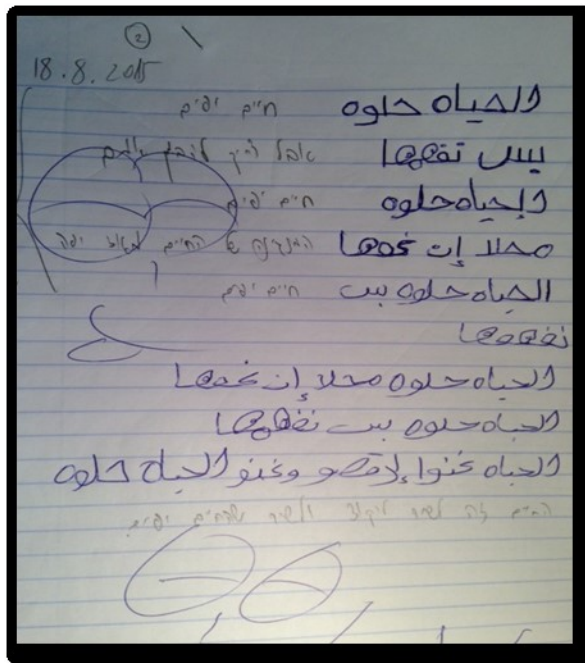 2
18.8.2015
الحياه حلوه חיים יפים
بس نفهمها אבל צריך להבין אותם
الحياه حلوه חיים יפים
محلا إن غمها המנגינה של החיים מאוד יפה
الحياه حلوه بس חיים יפים
نفهمها
الحياه حلوه محلا إن غمها
الحياه حلوه بس نفهمها
الحياه غنوا إلا قصو وغنو الحياه حلوه
החיים זה לשיר לרקוד ולשיר שהחיים יפים